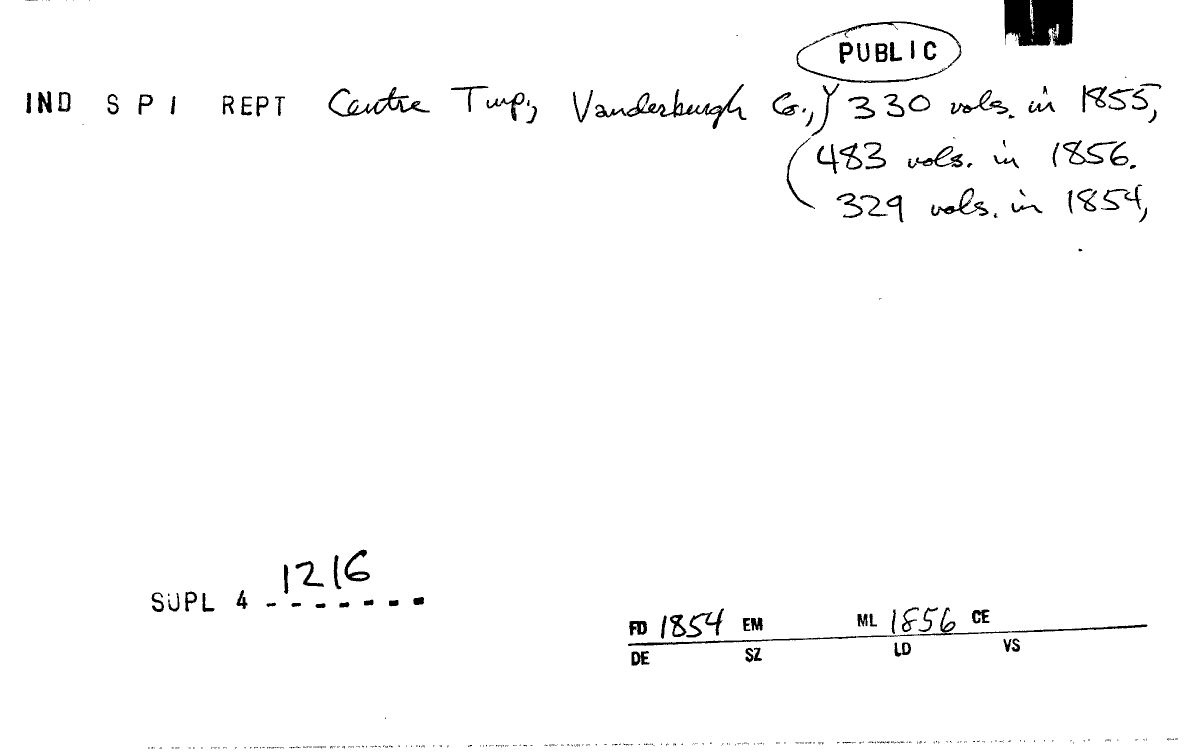 PUBLIC
IND S P I REPT Centre Twp., Vanderburgh Co., 330 vols. in 1855,
483 vols. in 1856.
329 vols. in 1854,
SUPL 4 1216
FD 1854 EM ML 1856 CE
DE SZ LD VS